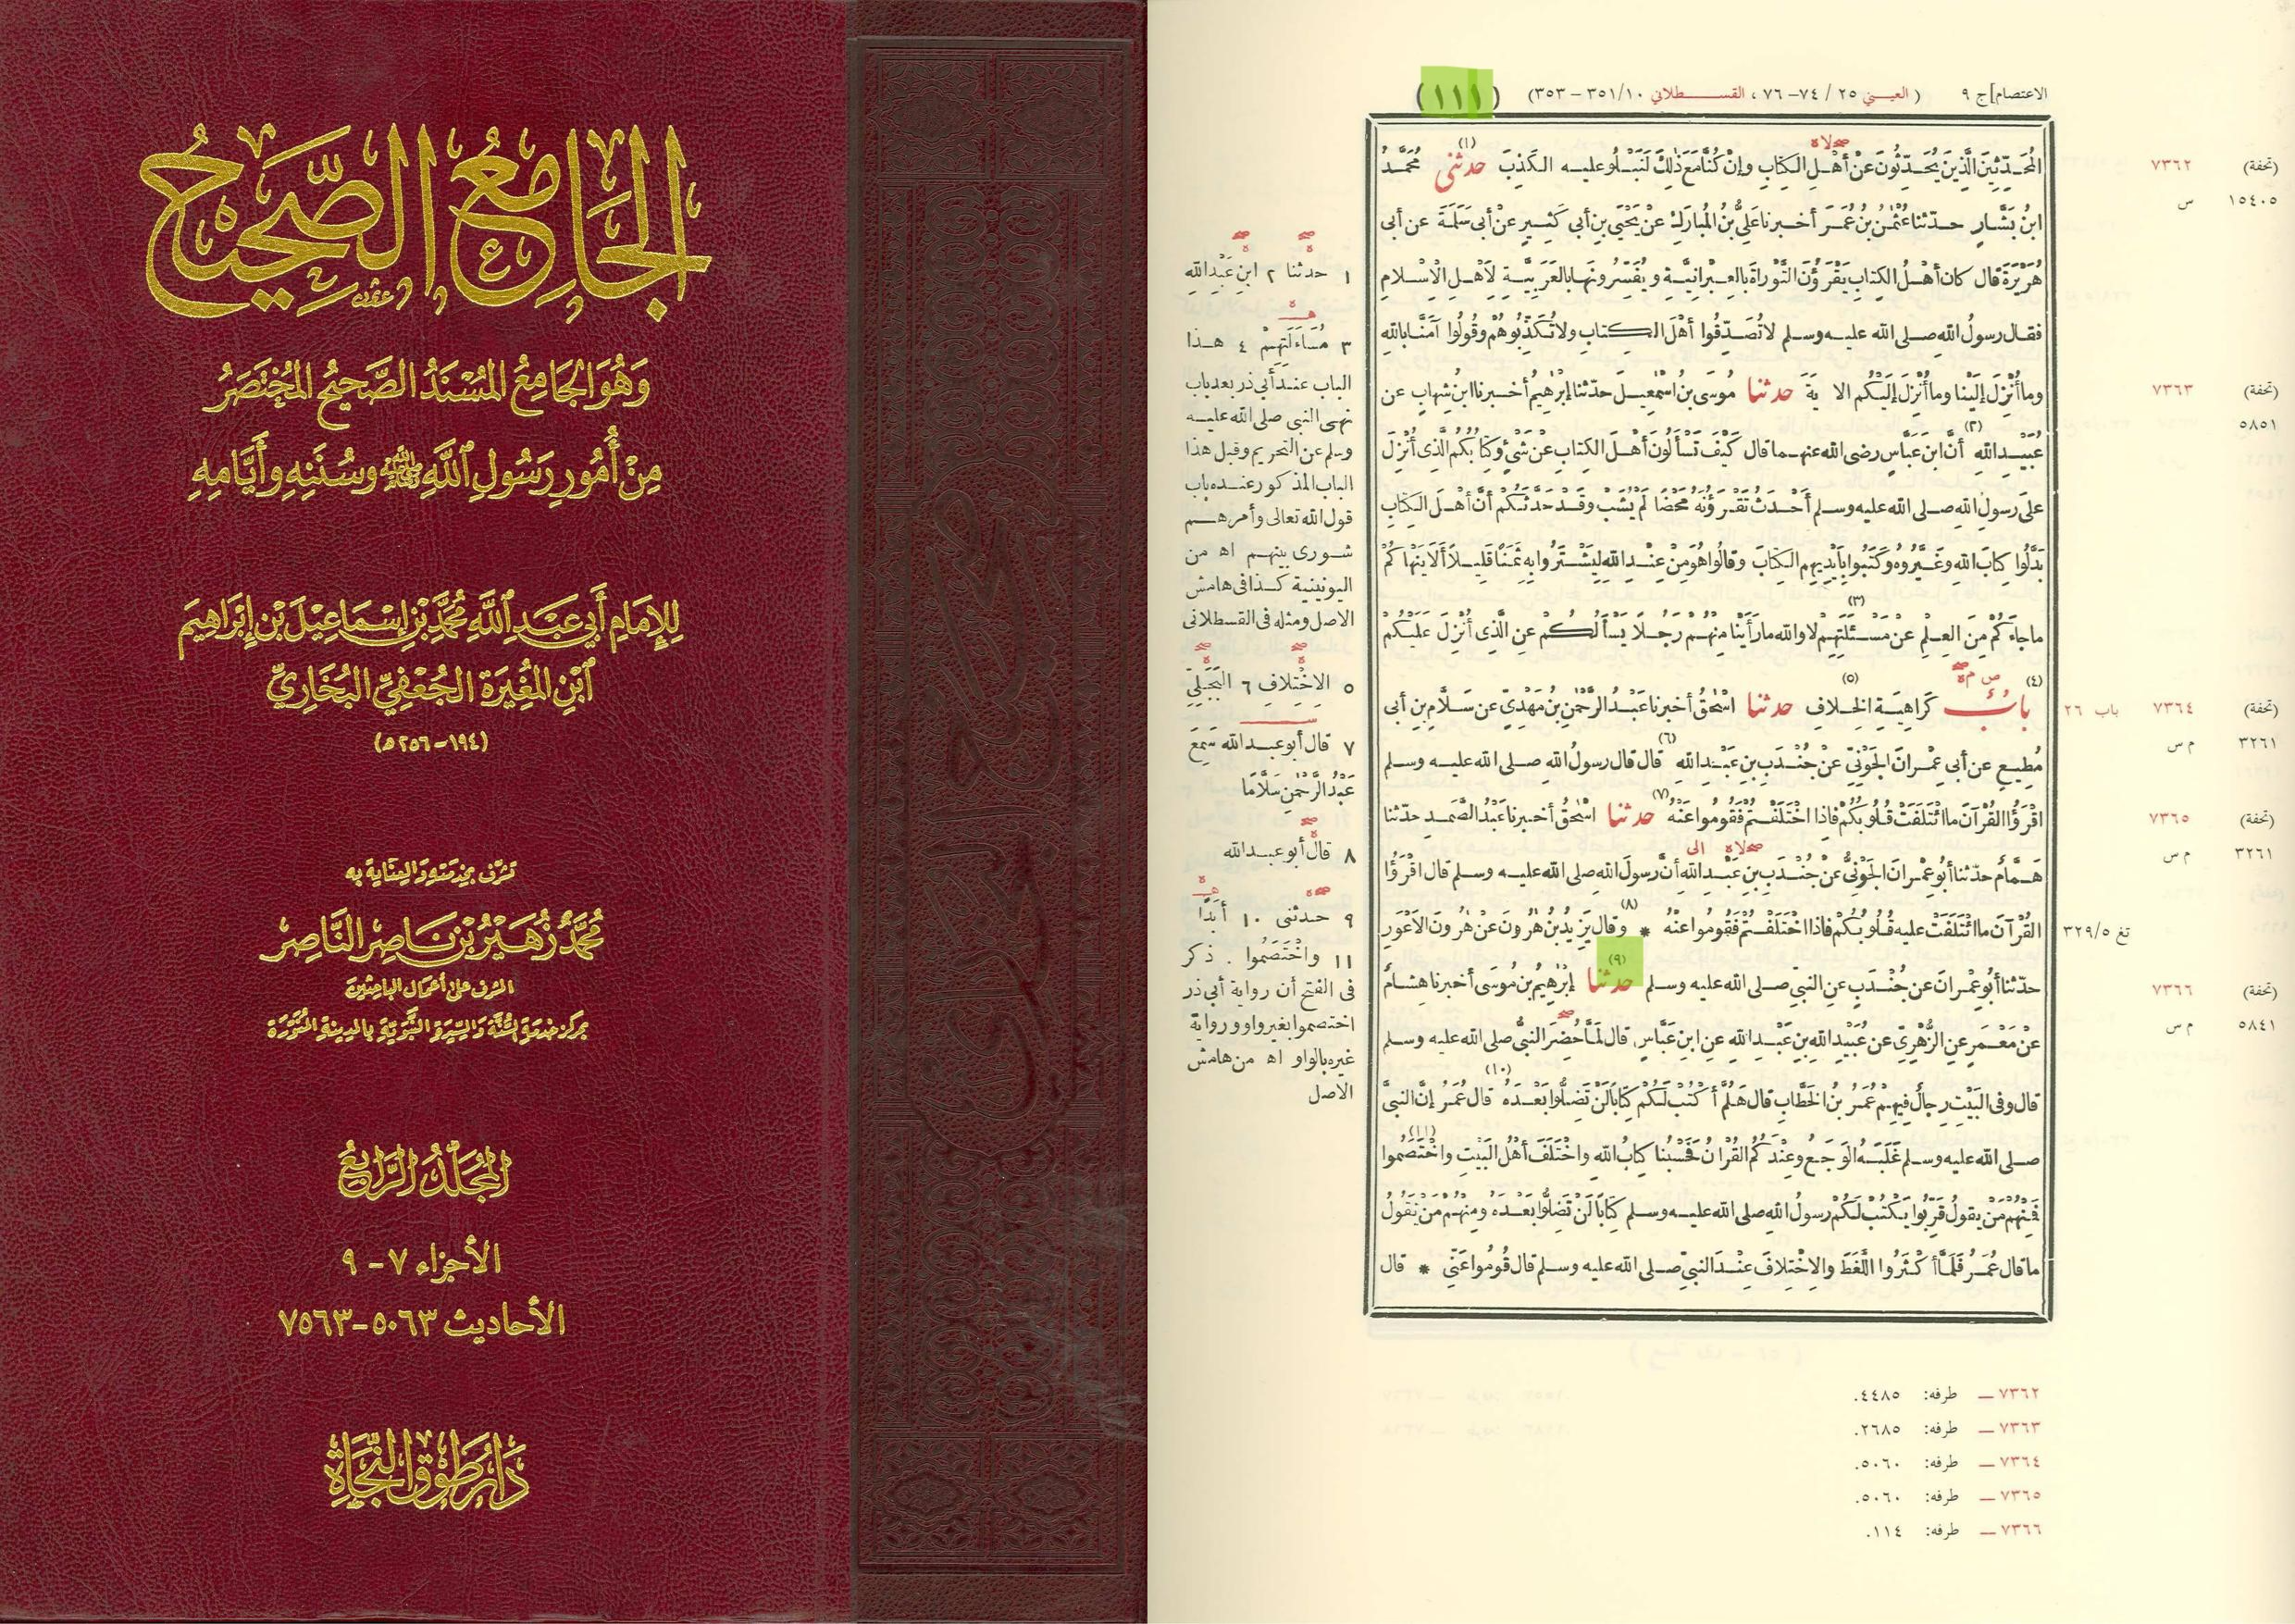 الجامع الصحيح
وهو الجامع المسند الصحيح المختصر
من أمور رسول الله ﷺ وسننه وأيامه
للإمام أبي عبد الله محمد بن إسماعيل بن إبراهيم
ابن المغيرة الجعفي البخاري
(١٩٤-٢٥٦ه)
تشرف بخدمته والعناية به
محمد زهير بن ناصر الناصر
المشرف على أعمال الباحثين
بمركز خدمة السنة والسيرة النبوية بالمدينة المنورة
المجلد الرابع
الأجزاء ٧-٩
الأحاديث ٥٠٦٣-٧٥٦٣
دار طوق النجاة
الاعتصام] ج ٩ (العيني ٢٥ / ٧٤-٧٦ ، القسطلاني ١٠/ ٣٥١-٣٥٣) (١١١)
المحدثين الذين يحدثون عن أهل الكتاب وإن كنا مع ذلك لنبلو عليه الكذب (١) حدثني محمد
ابن بشار حدثنا عثمن بن عمر أخبرنا علي بن المبارك عن يحيى بن أبي كثير عن أبي سلمة عن أبي
هريرة قال كان أهل الكتاب يقرؤن التوراة بالعبرانية ويفسرونها بالعربية لأهل الإسلام
فقال رسول الله صلى الله عليه وسلم لا تصدقوا أهل الكتاب ولا تكذبوهم وقولوا آمنا بالله
وما أنزل إلينا وما أنزل إليكم الا ية حدثنا موسى بن اسمعيل حدثنا إبرهيم أخبرنا ابن شهاب عن
عبيد الله (٢) أن ابن عباس رضي الله عنهما قال كيف تسألون أهل الكتاب عن شئ وكتابكم الذي أنزل
على رسول الله صلى الله عليه وسلم أحدث تقرؤنه محضا لم يشب وقد حدثكم أن أهل الكتاب
بدلوا كتاب الله وغيروه وكتبوا بأيديهم الكتاب وقالوا هو من عند الله ليشتروا به ثمنا قليلا ألا ينهاكم
ما جاءكم من العلم عن مسئلتهم (٣) لا والله ما رأينا منهم رجلا يسألكم عن الذي أنزل عليكم
(٤) باب كراهية الخلاف (٥) حدثنا اسحق أخبرنا عبد الرحمن بن مهدي عن سلام بن أبي
مطيع عن أبي عمران الجوني عن جندب بن عبد الله (٦) قال قال رسول الله صلى الله عليه وسلم
اقرؤا القرآن ما ائتلفت قلوبكم فاذا اختلفتم فقوموا عنه (٧) حدثنا اسحق أخبرنا عبد الصمد حدثنا
همام حدثنا أبو عمران الجوني عن جندب بن عبد الله أن رسول الله صلى الله عليه وسلم قال اقرؤا
القرآن ما ائتلفت عليه قلوبكم فاذا اختلفتم فقوموا عنه * (٨) وقال يزيد بن هرون عن هرون الأعور
حدثنا أبو عمران عن جندب عن النبي صلى الله عليه وسلم (٩) حدثنا إبرهيم بن موسى أخبرنا هشام
عن معمر عن الزهري عن عبيد الله بن عبد الله عن ابن عباس قال لما حضر النبي صلى الله عليه وسلم
قال وفي البيت رجال فيهم عمر بن الخطاب قال هلم أكتب لكم كتابا لن تضلوا بعده (١٠) قال عمر إن النبي
صلى الله عليه وسلم غلبه الوجع وعندكم القرآن فحسبنا كتاب الله واختلف أهل البيت واختصموا (١١)
فمنهم من يقول قربوا يكتب لكم رسول الله صلى الله عليه وسلم كتابا لن تضلوا بعده ومنهم من يقول
ما قال عمر فلما أكثروا اللغط والاختلاف عند النبي صلى الله عليه وسلم قال قوموا عني * قال
١ حدثنا ٢ ابن عبد الله
٣ مساءلتهم ٤ هذا
الباب عند أبي ذر بعد باب
نهى النبي صلى الله عليه
وسلم عن التحريم وقبل هذا
الباب المذكور عنده باب
قول الله تعالى وأمرهم
شورى بينهم اه من
اليونينية كذا في هامش
الاصل ومثله في القسطلاني
٥ الاختلاف ٦ البجلي
٧ قال أبو عبد الله سمع
عبد الرحمن سلاما
٨ قال أبو عبد الله
٩ حدثني ١٠ أبدا
١١ واختصموا . ذكر
في الفتح أن رواية أبي ذر
اختصموا بغير واو ورواية
غيره بالواو اه من هامش
الاصل
٧٣٦٢ (تحفة)
س ١٥٤٠٥
٧٣٦٣ (تحفة)
٥٨٥١
باب ٢٦ ٧٣٦٤ (تحفة)
م س ٣٢٦١
٧٣٦٥ (تحفة)
م س ٣٢٦١
تغ ٥/٣٢٩
٧٣٦٦ (تحفة)
م س ٥٨٤١
٧٣٦٢ — طرفه: ٤٤٨٥.
٧٣٦٣ — طرفه: ٢٦٨٥.
٧٣٦٤ — طرفه: ٥٠٦٠.
٧٣٦٥ — طرفه: ٥٠٦٠.
٧٣٦٦ — طرفه: ١١٤.